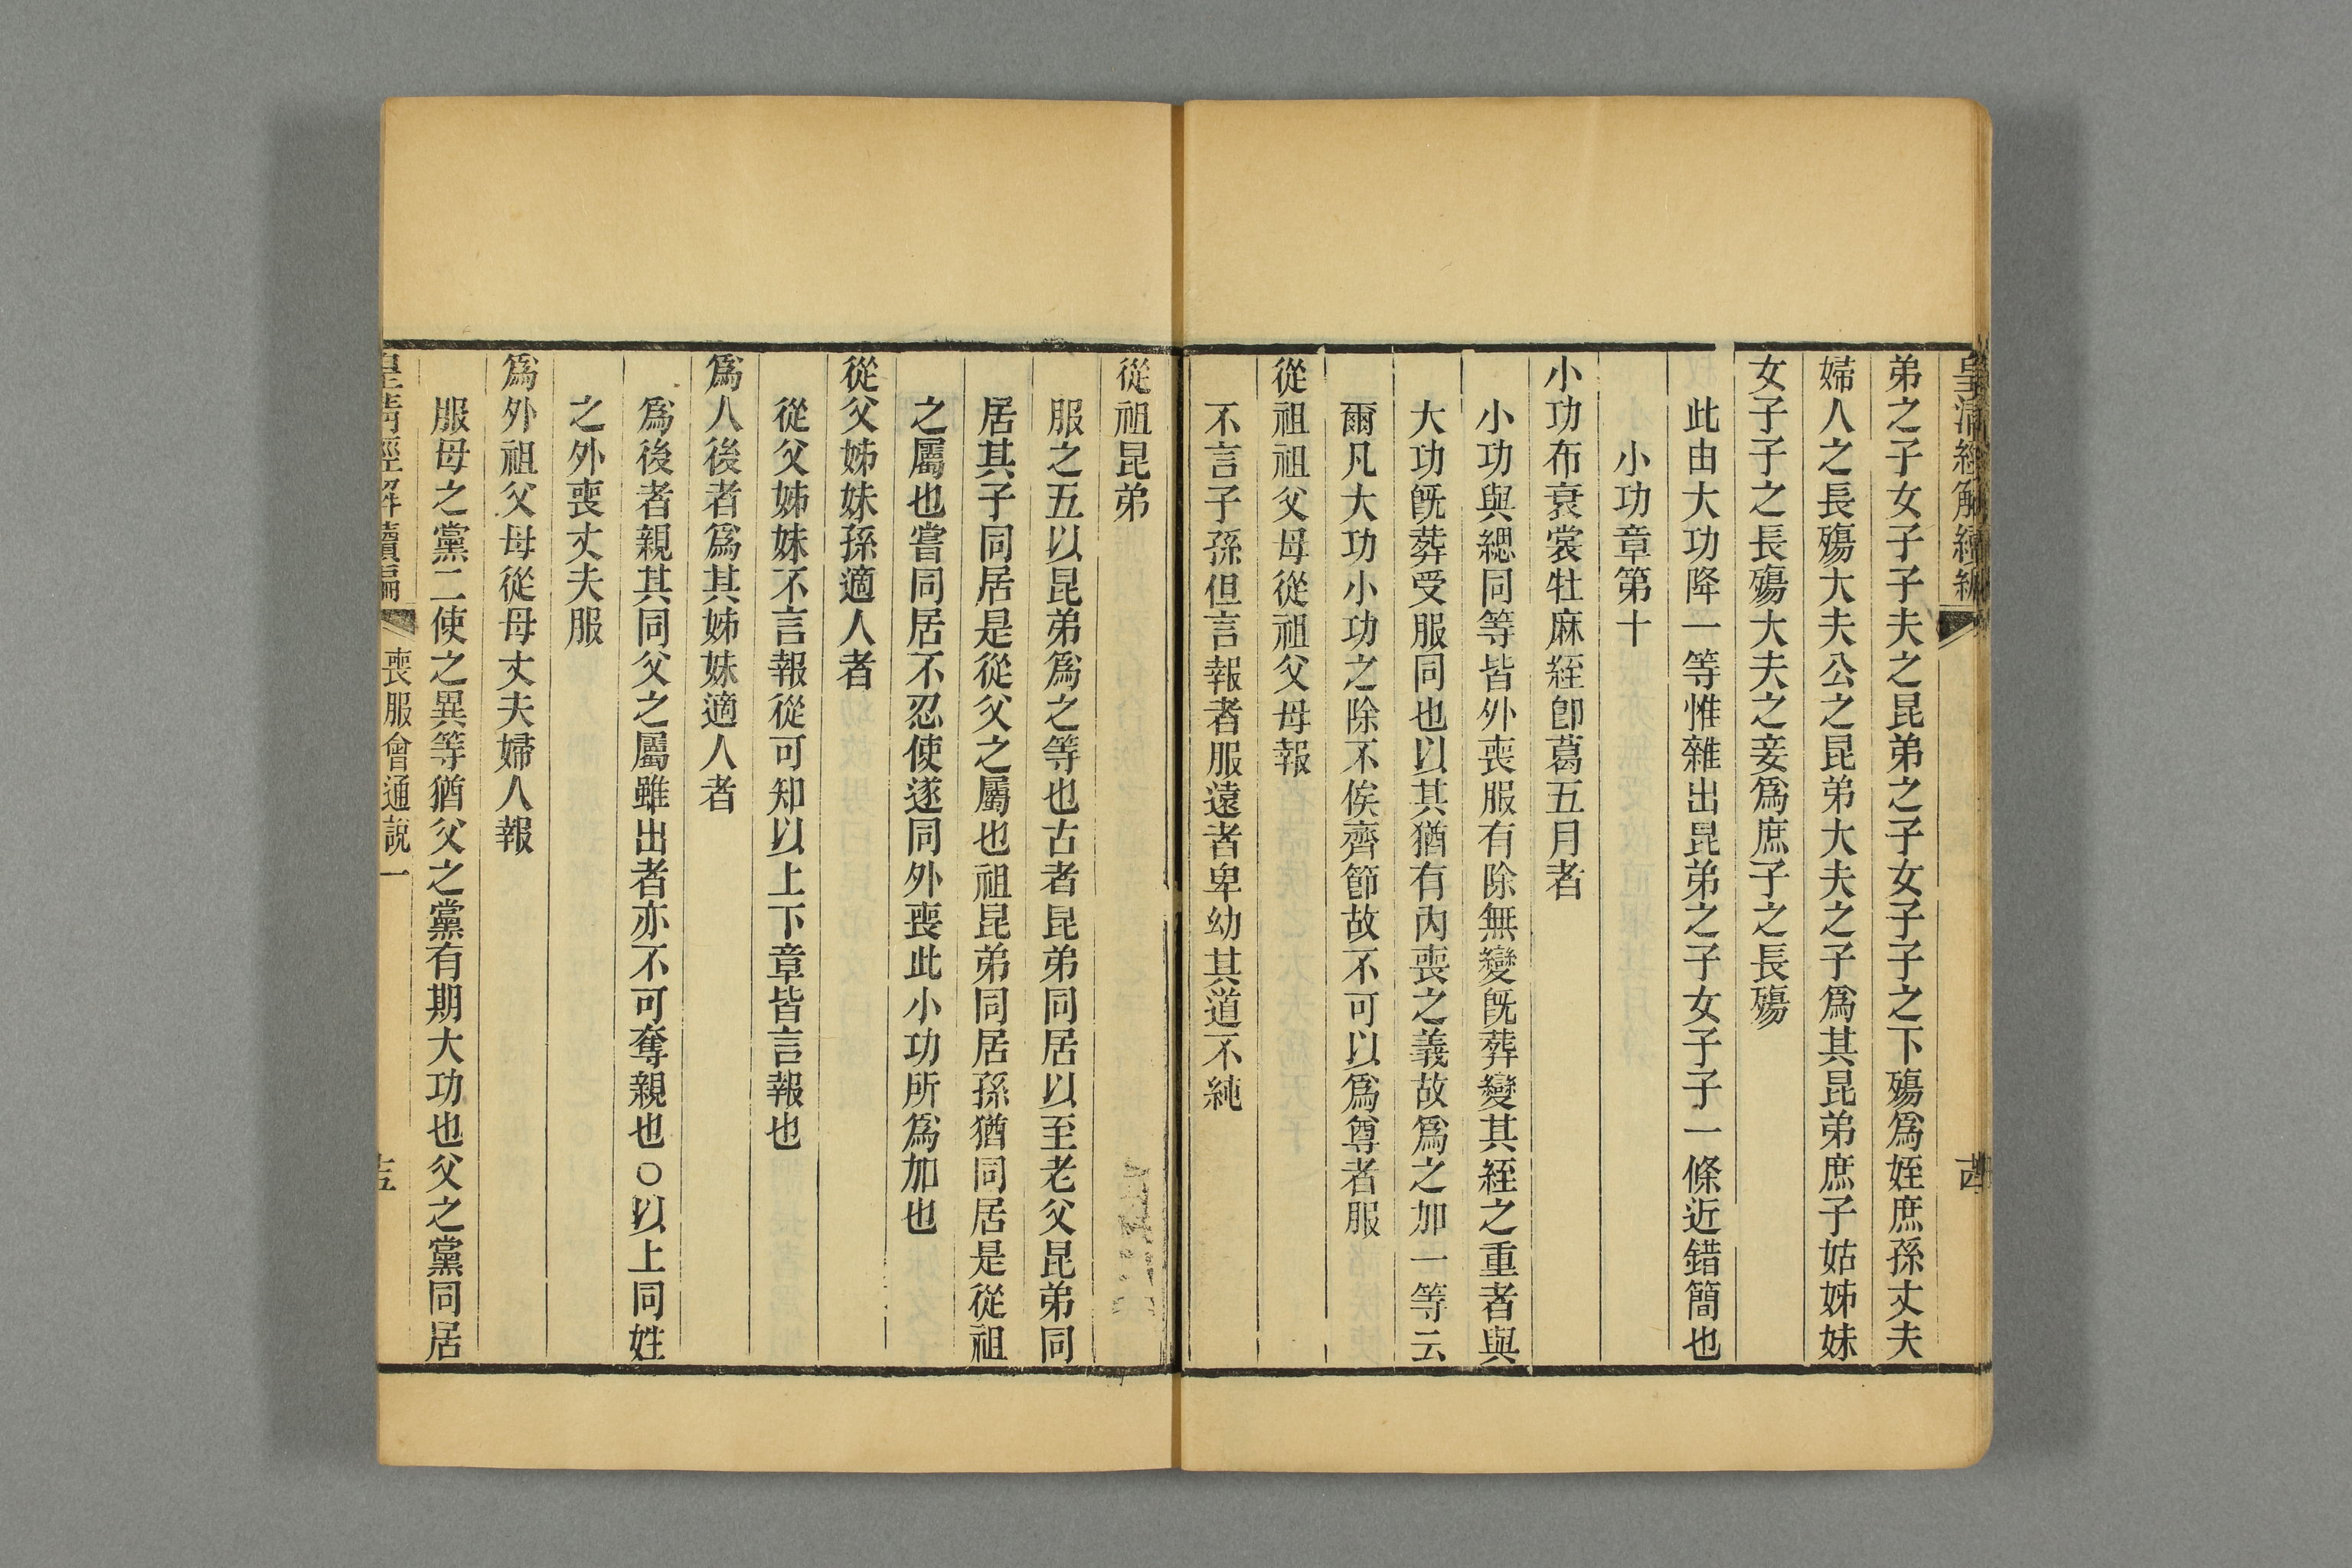 皇清經解續編
弟之子女子子夫之昆弟之子女子子之下殤爲姪庶孫丈夫
婦人之長殤大夫公之昆弟大夫之子爲其昆弟庶子姑姊妹
女子子之長殤大夫之妾爲庶子之長殤
此由大功降一等惟雜出昆弟之子女子子一條近錯簡也
小功章第十
小功布衰裳牡麻絰卽葛五月者
小功與緦同等皆外喪服有除無變旣葬變其絰之重者與
大功旣葬受服同也以其猶有內喪之義故爲之加一等云
爾凡大功小功之除不俟齊節故不可以爲尊者服
從祖祖父母從祖父母報
不言子孫但言報者服遠者卑幼其道不純
從祖昆弟
服之五以昆弟爲之等也古者昆弟同居以至老父昆弟同
居其子同居是從父之屬也祖昆弟同居孫猶同居是從祖
之屬也嘗同居不忍使遂同外喪此小功所爲加也
從父姊妹孫適人者
從父姊妹不言報從可知以上下章皆言報也
爲人後者爲其姊妹適人者
爲後者親其同父之屬雖出者亦不可奪親也○以上同姓
之外喪丈夫服
爲外祖父母從母丈夫婦人報
服母之黨二使之異等猶父之黨有期大功也父之黨同居
皇清經解續編 喪服會通說一